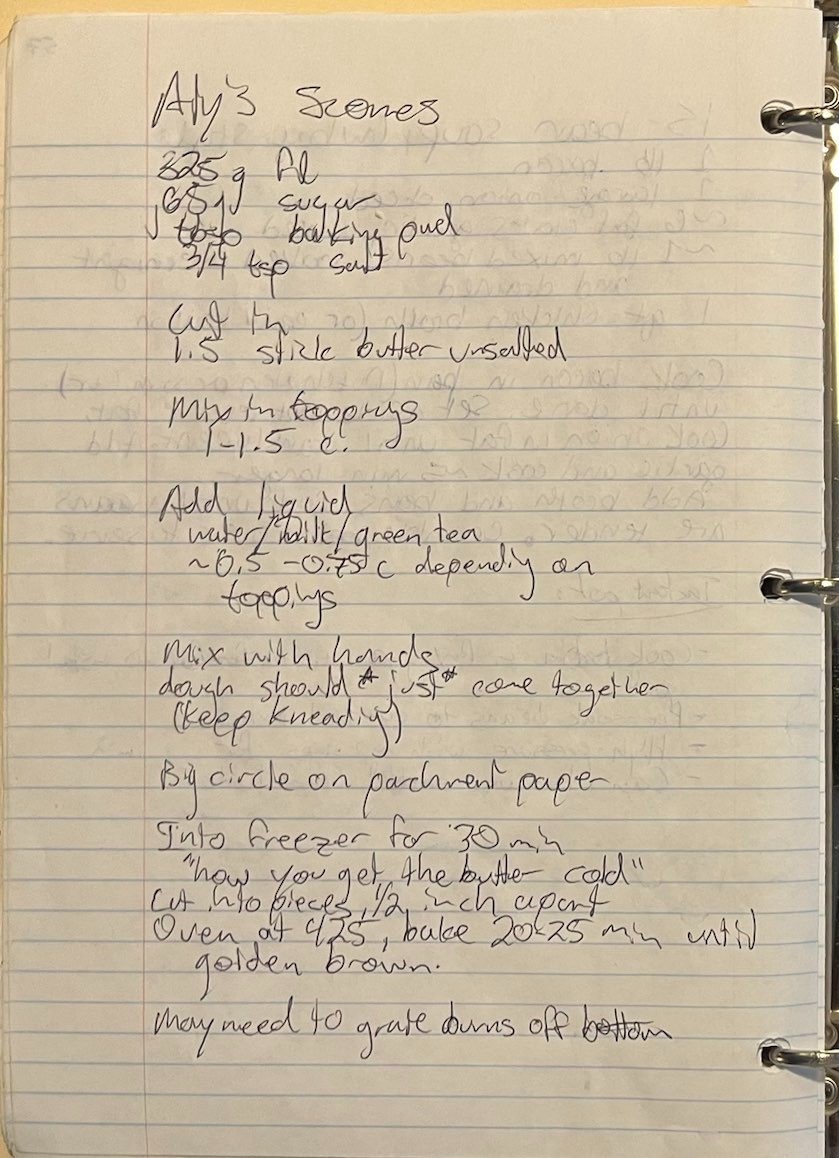 Aly's Scones
325 g fl
65 g sugar
1 tbsp baking pwd
3/4 tsp salt
Cut in
1.5 stick butter unsalted
Mix in toppings
1-1.5 c.
Add liquid
water/milk/green tea
~0.5 - 0.75 c depending on
toppings
Mix with hands
dough should *just* come together
(keep kneading)
Big circle on parchment paper
Into freezer for 30 min
"how you get the butter cold"
Cut into pieces, 1/2 inch apart
Oven at 425, bake 20-25 min until
golden brown.
May need to grate burns off bottom